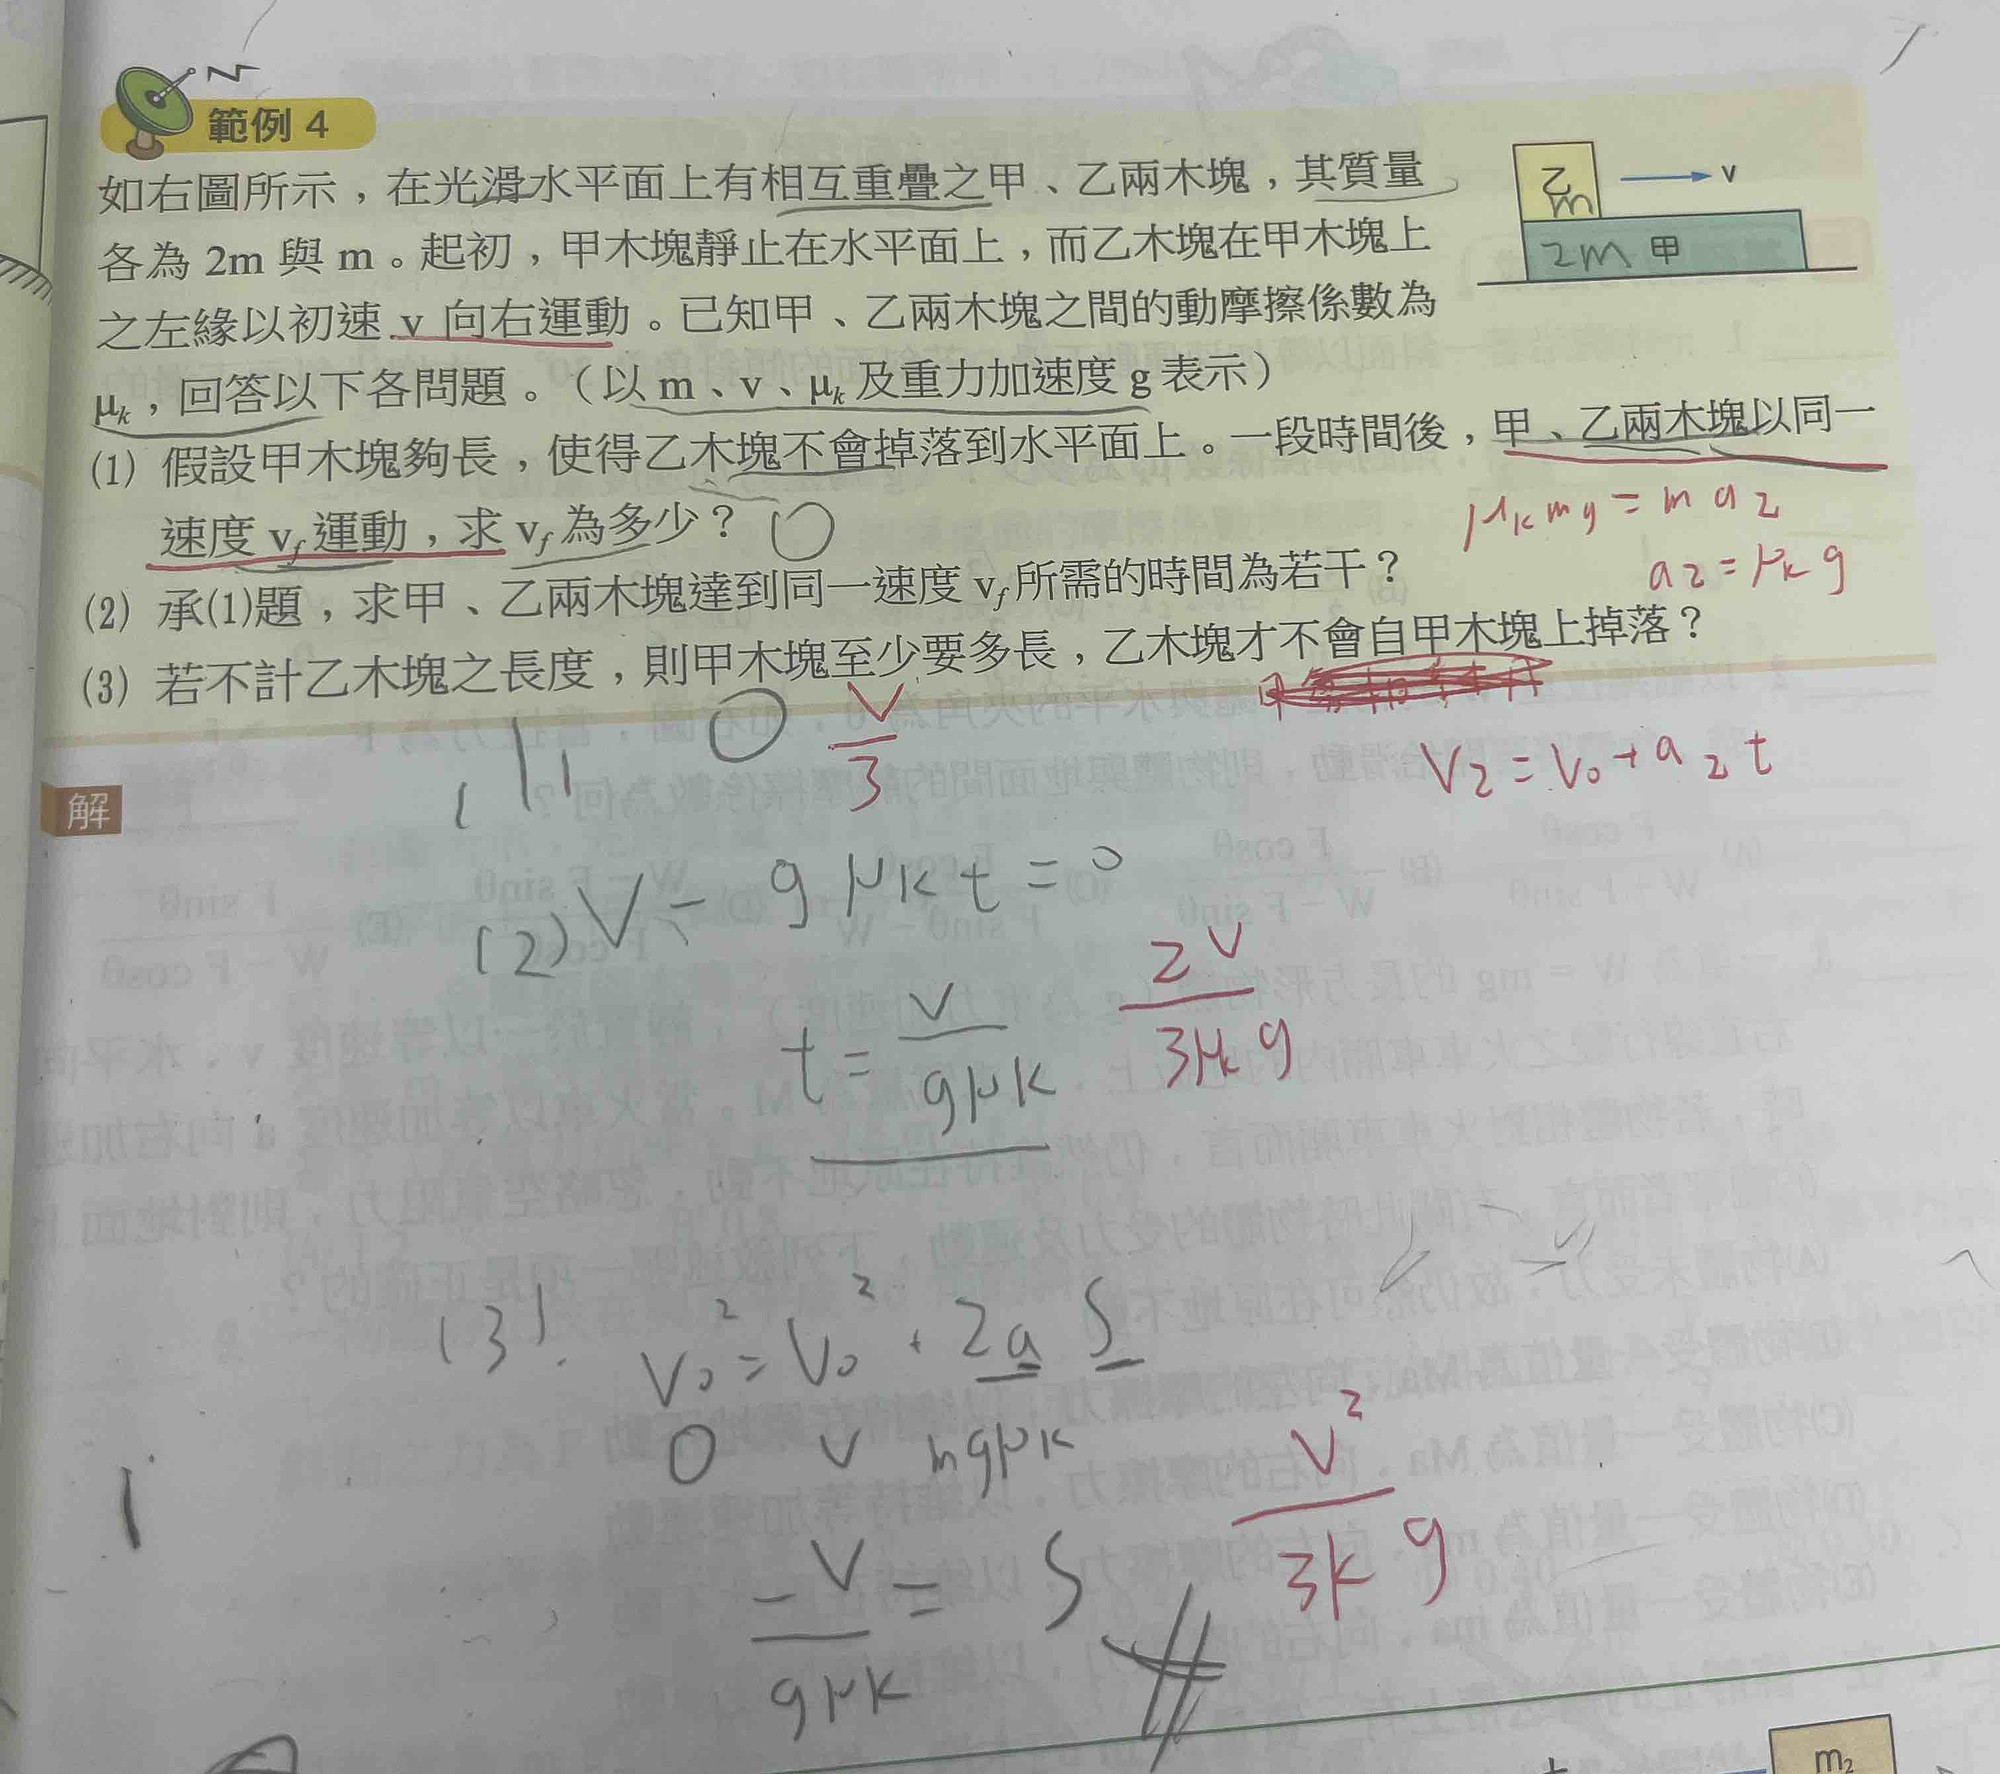 範例 4
如右圖所示，在光滑水平面上有相互重疊之甲、乙兩木塊，其質量
各為 2m 與 m。起初，甲木塊靜止在水平面上，而乙木塊在甲木塊上
之左緣以初速 v 向右運動。已知甲、乙兩木塊之間的動摩擦係數為
μk，回答以下各問題。（以 m、v、μk 及重力加速度 g 表示）
乙
m
v
2m 甲
(1) 假設甲木塊夠長，使得乙木塊不會掉落到水平面上。一段時間後，甲、乙兩木塊以同一
速度 vf 運動，求 vf 為多少？
(2) 承(1)題，求甲、乙兩木塊達到同一速度 vf 所需的時間為若干？
(3) 若不計乙木塊之長度，則甲木塊至少要多長，乙木塊才不會自甲木塊上掉落？
μk mg = m a2
a2 = μk g
解
(1) 0
v/3
V2 = V0 + a2 t
(2) V - gμk t = 0
t = v/gμk
2v/3μk g
(3) V0² = V0² + 2a S
0 v mgμk
-v/gμk = S
v²/3k g
m2